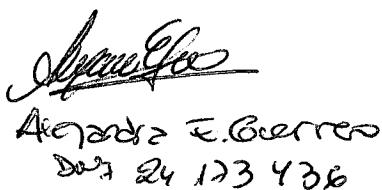 Alejandra E. Guerrero
DNI 24 173 436